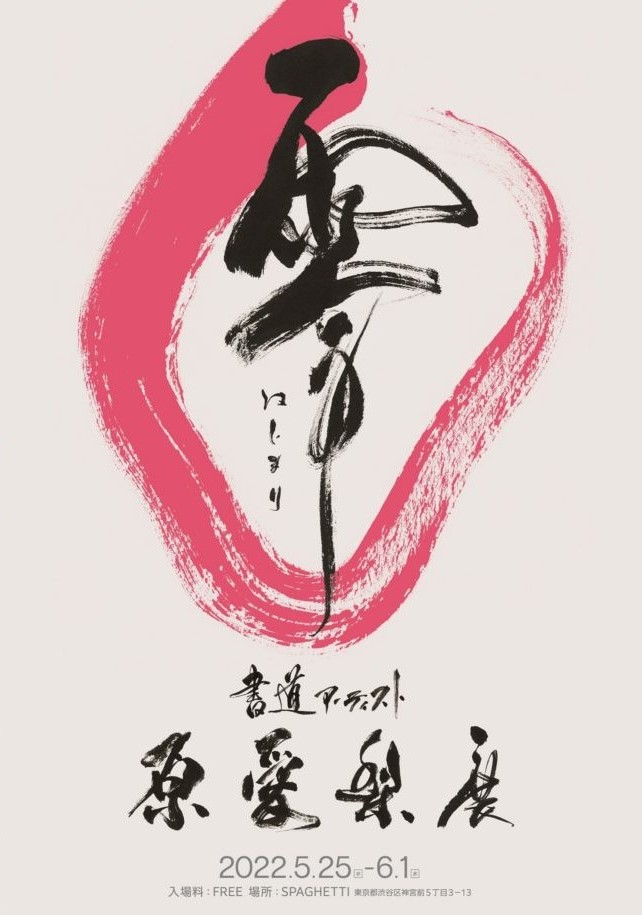 零
はじまり
書道アーティスト
原愛梨展
2022.5.25水-6.1水
入場料：FREE 場所：SPAGHETTI 東京都渋谷区神宮前5丁目3−13